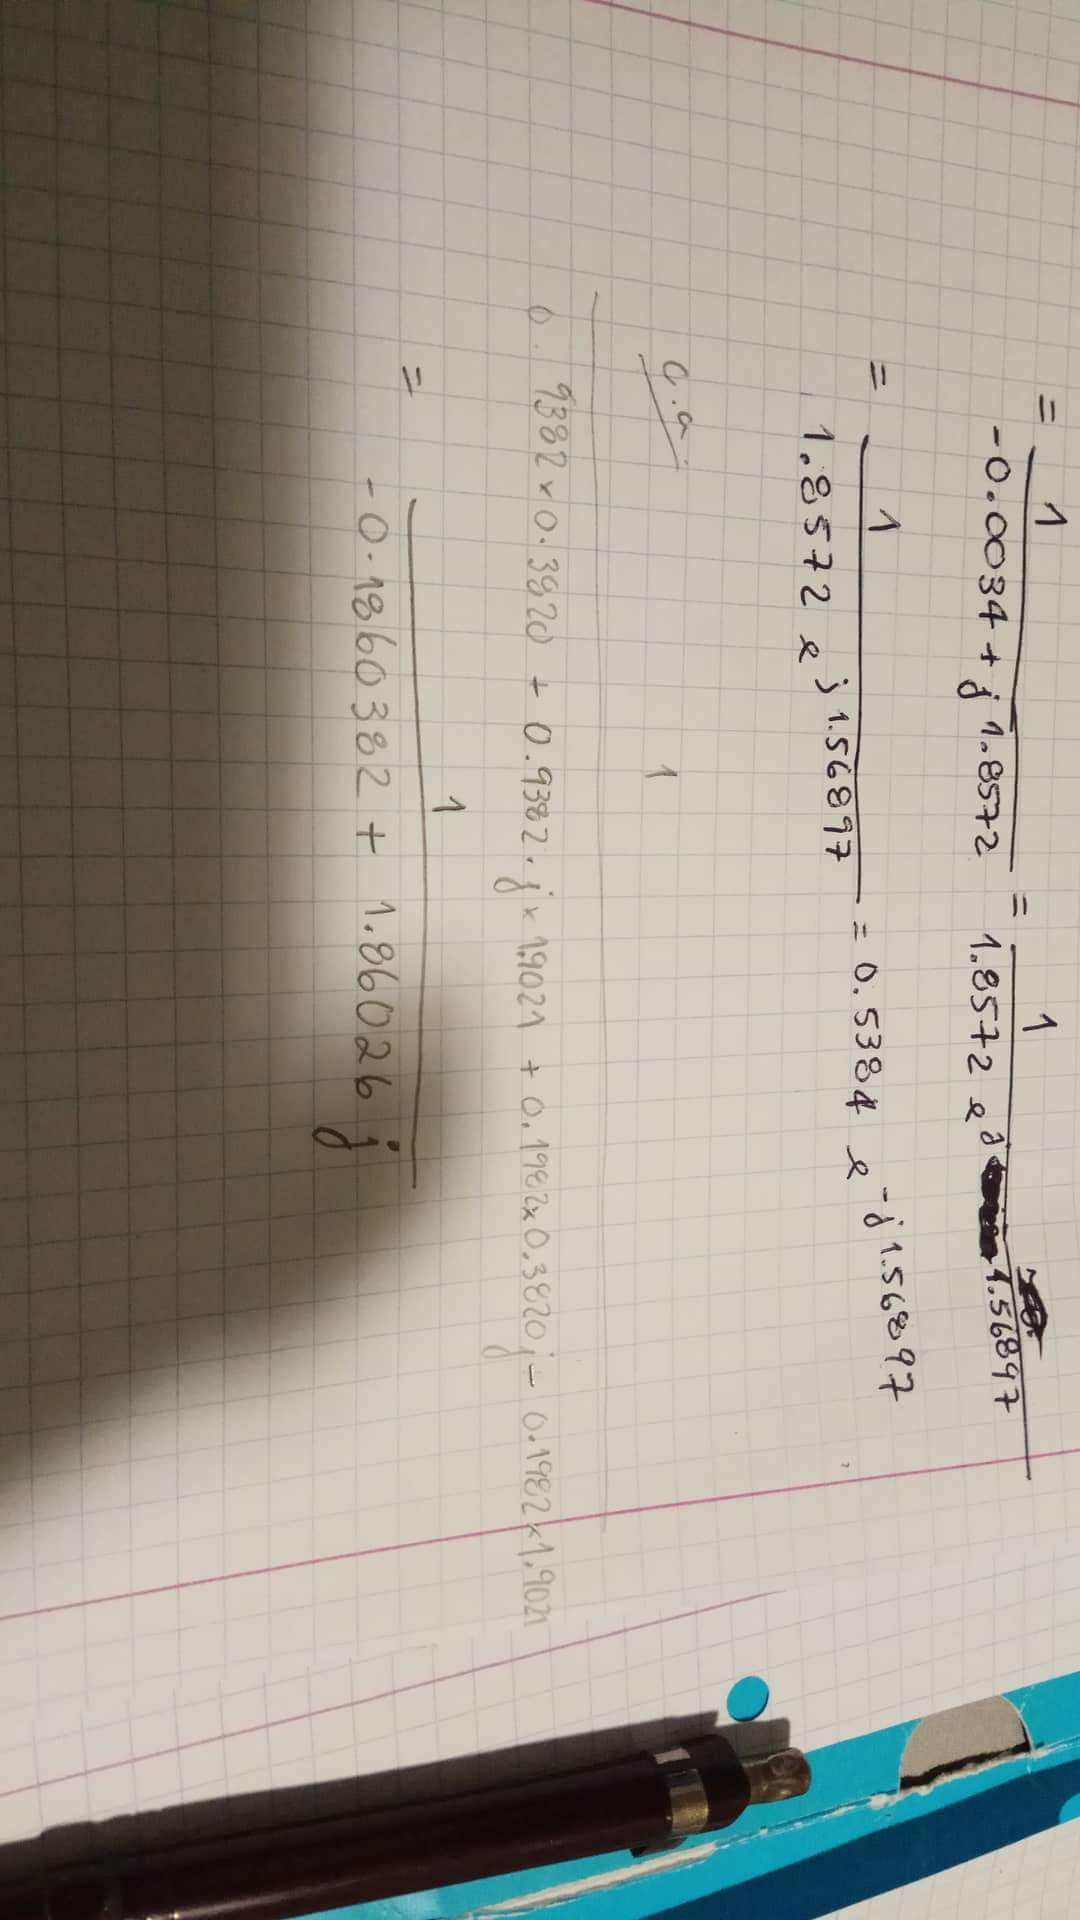 = 1
-0.0034 + j 1.8572 = 1
1.8572 e^j 1.56897
= 1
1.8572 e^j 1.56897 = 0.5384 e^-j 1.56897
c.a
1
0.9382 × 0.3820 + 0.9382.j × 1.9021 + 0.1982 × 0.3820j - 0.1982 × 1.9021
= 1
-0.1860382 + 1.86026 j